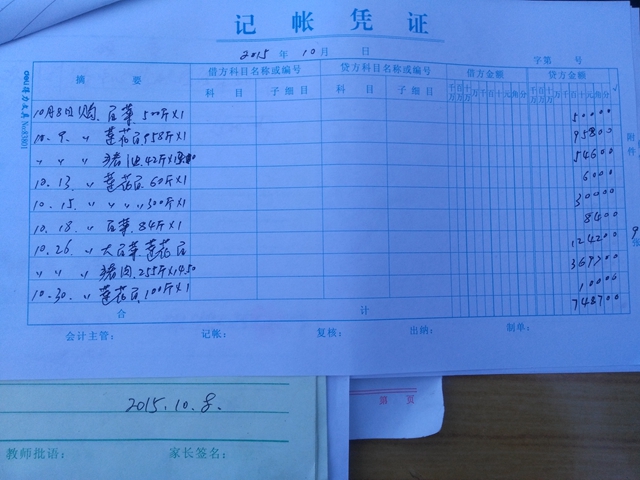 记帐凭证
2015 年 10 月 日
字第 号
摘要 借方科目名称或编号 贷方科目名称或编号 借方金额 贷方金额 √
科目 子细目 科目 子细目 千百十万千百十元角分 千百十万千百十元角分
10月8日购 白菜 500斤×1 50000
10.9. 〃 莲花白 958斤×1 95800
〃 〃 猪 42斤×13.00 54600
10.13. 〃 莲花白 60斤×1 6000
10.15 〃 〃 〃 300斤×1 30000
10.18 〃 白菜 84斤×1 8400
10.26 〃 大白菜 莲花白 124200
〃 〃 猪肉 255斤×14.50 369700
10.30. 〃 莲花白 100斤×1 10000
合计 748700
附件 9 张
会计主管: 记帐: 复核: 出纳: 制单:
得力文具 No:83801
第 页
2015.10.8.
教师批语: 家长签名: